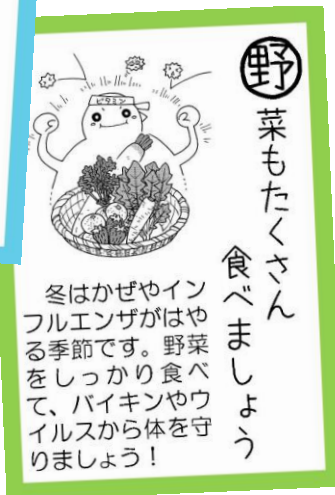 野菜もたくさん
食べましょう
ビタミン
冬はかぜやイン
フルエンザがはや
る季節です。野菜
をしっかり食べ
て、バイキンやウ
イルスから体を守
りましょう！